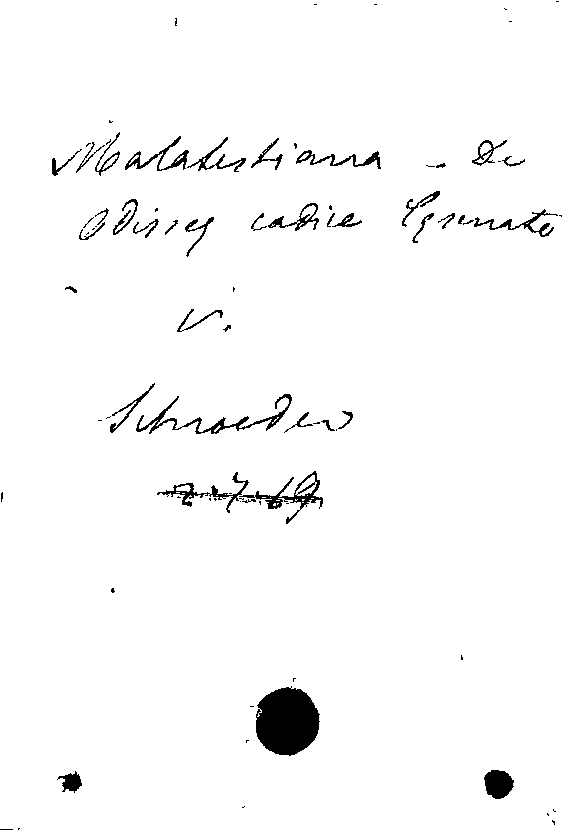 Malatestiana - De
Odisseę codice Cęsenate
v.
Schroeder
2.7.69